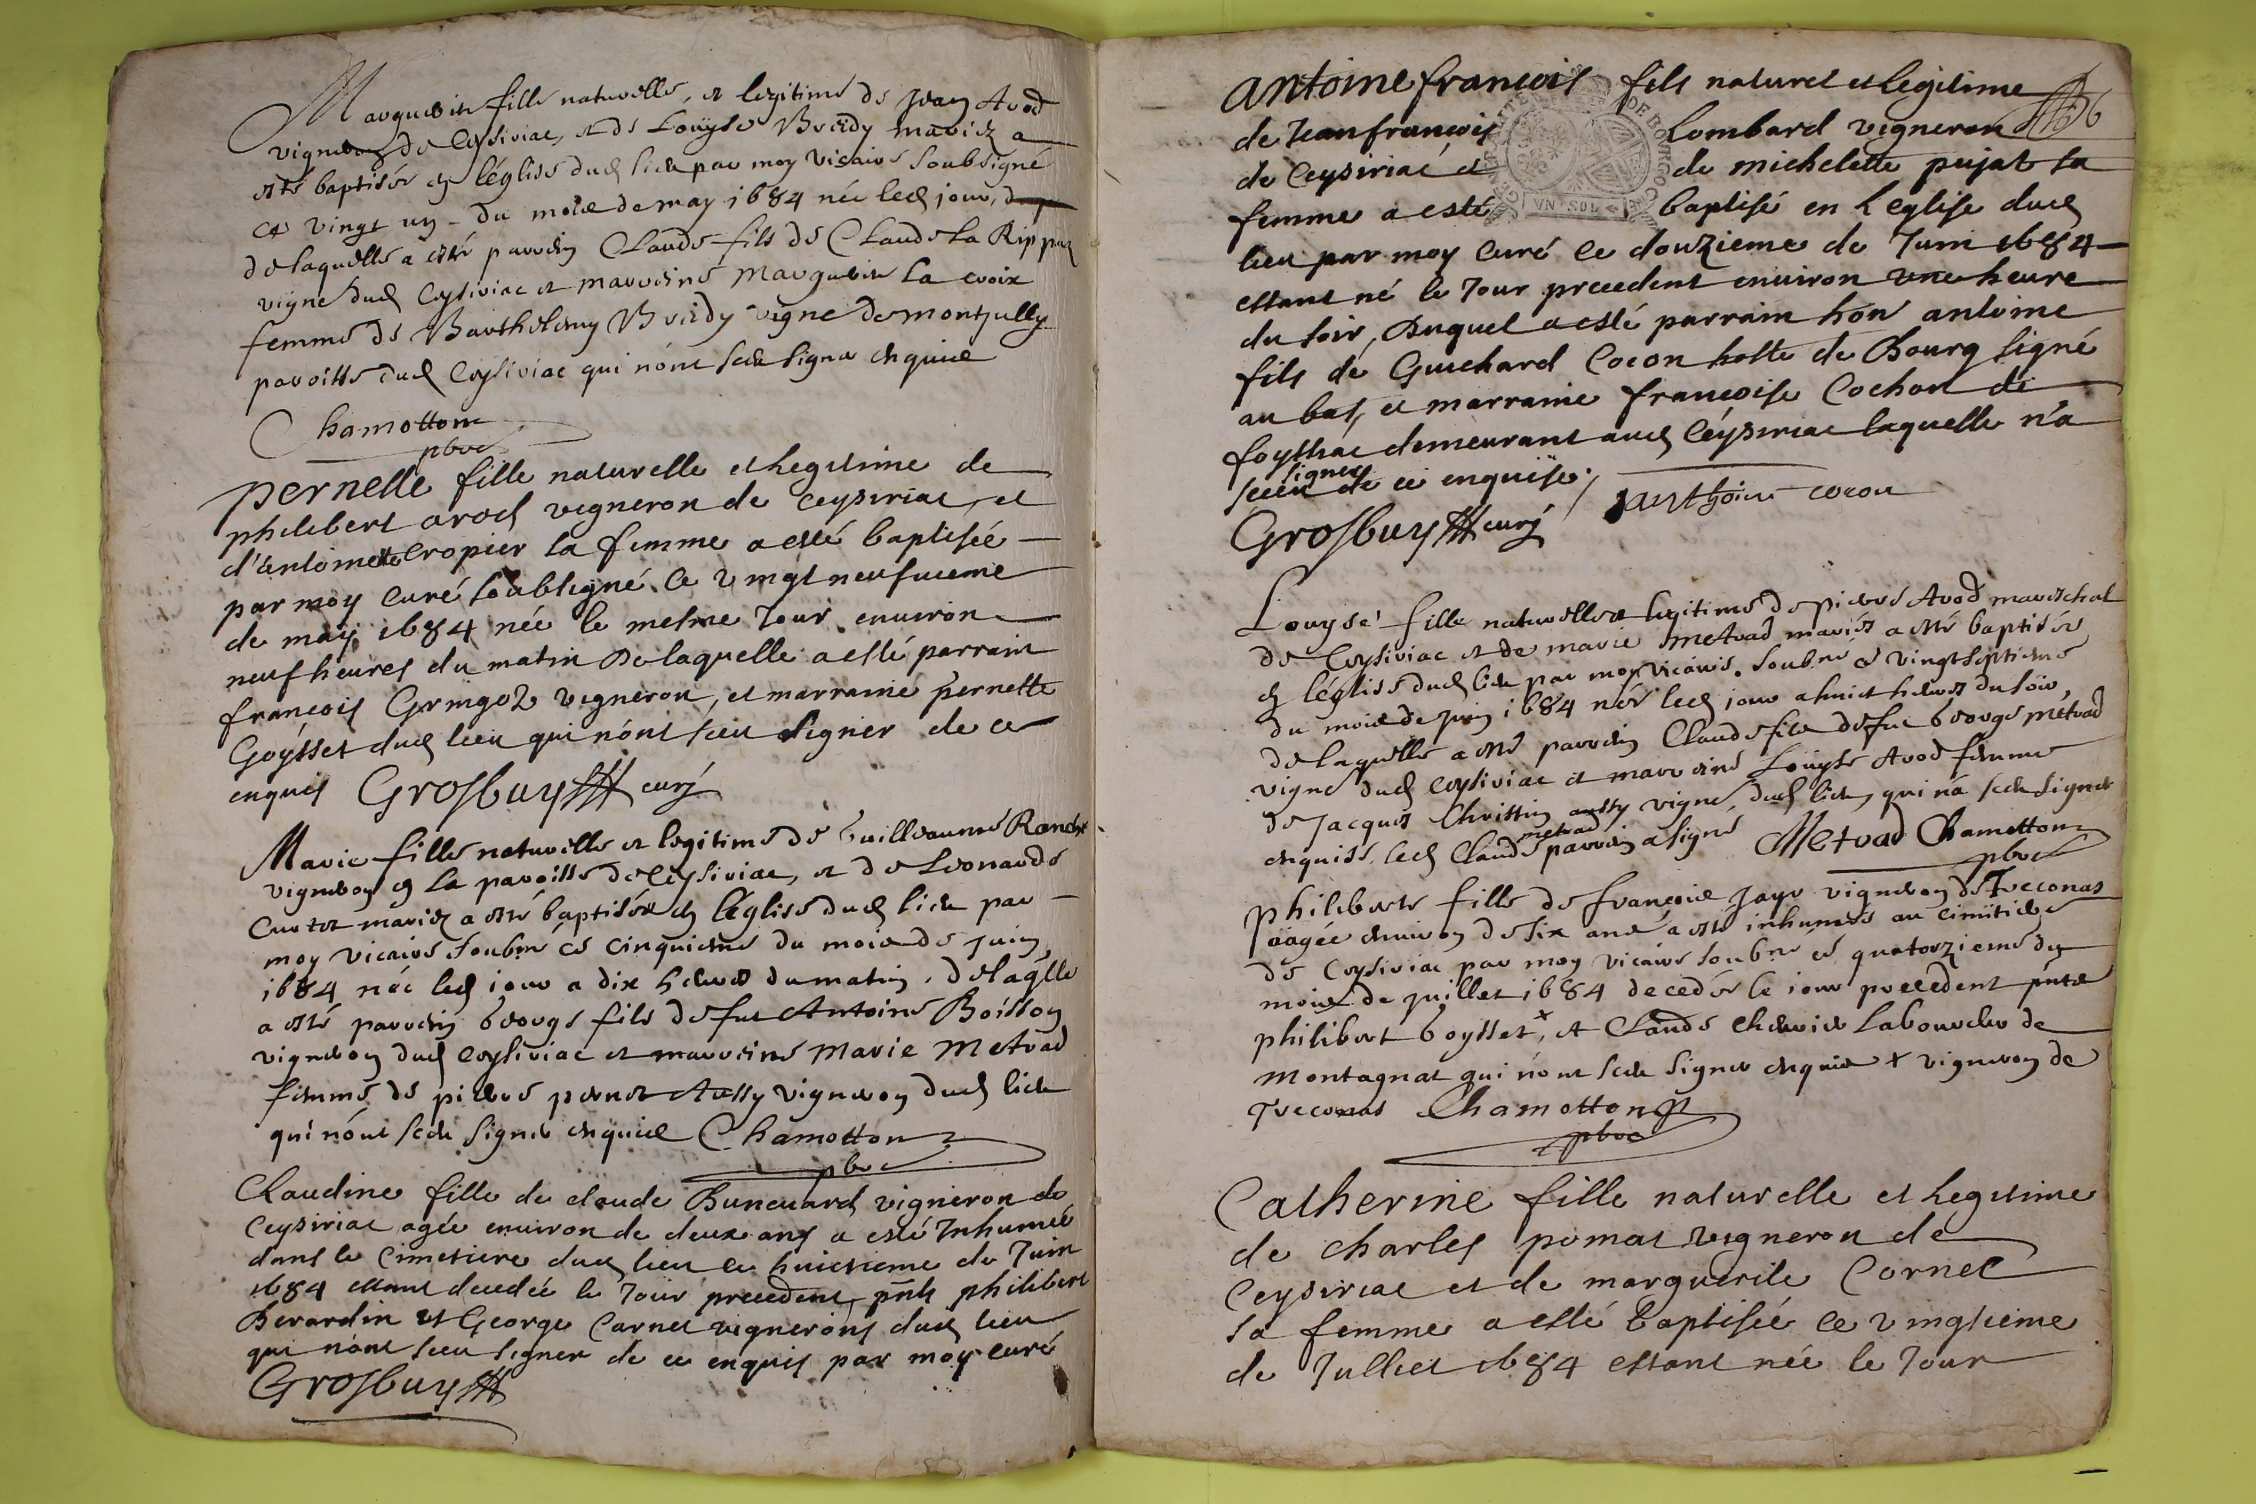 Marguerite fille naturelle, et legitime de Jean Arod
vigneron de Ceysiriac, et de Louÿse Breidy mariez a
esté baptisée en léglise dud lieu par moy vicaire soubsigné
ce vingt un du mois de may 1684 née led jour,
de laquelle a esté parrein Claude fils de Claude La Rippaz
vigne dud Ceysiriac et marreine Marguerite La croix
femme de Barthelemy Breidy vigne de montjully
paroisse dud Ceysiriac qui nónt sceu signer enquis
Chamotton
pbre
pernelle fille naturelle et legitime de
philibert arod vigneron de ceysiriac, et
d'antoinette cropier sa femme a esté baptisée
par moy curé soubsigné ce vingt neufuieme
de maÿ 1684 née le mesme Jour enuiron
neuf heures du matin De laquelle a esté parrain
françois Gringoz vigneron, et marraine pernette
Goÿsset dud lieu qui nónt sceu signer de ce
enquis Grosbuy curé
Marie fille naturelle et legitime de Guilleaume
vigneron en la paroisse de Ceysiriac, et de Leonarde
Curtet mariez a esté baptisée en léglise dud lieu par
moy vicaire soubné ce cinquieme du mois de juin
1684 née led iour a dix heures du matin, de laqlle
a esté parrein George fils de fut Antoine Boisson
vigneron dud ceysiriac et marreine Marie Metrad
femme de pierre pernet Aussy vigneron dud lieu
qui nónt sceu signer enquis Chamotton
pbre
Claudine fille de claude Buncuard vigneron de
Ceysiriac agée enuiron de deux ans a esté Inhumée
dans le Cimetiere dud lieu ce huictieme de Juin
1684 estant decedée le Jour precedent, pñts philibert
Berardin et George Carnet vignerons dud lieu
qui nónt sceu signer de ce enquis par moy curé
Grosbuy
antoine françois fils naturel et legitime
de Jean françois Lombard vigneron
de Ceysiriac et de michelette pujat sa
femme a esté baptisé en L eglise dud
lieu par moy curé ce douzieme de Juin 1684
estant né le Jour precedent enuiron une heure
du soir, Duquel a esté parrain hon antoine
fils de Guichard Cocon hoste de Bourg signé
au bas, et marraine françoise Cochon de
foyssiac demeurant aud Ceÿsiriac laquelle n'a
signer
sceu de ce enquise.
Grosbuy curé anthoine cocon
VN SOL
Louyse fille naturelle et legitime de pierre Arod mareschal
de Ceysiriac et de marie Metrad mariés a esté baptisée
en léglise dud lieu par moy vicaire soubné ce vingt septieme
du mois de Juin 1684 née led iour a huict heures du soir,
de laquelle a esté parrein Claude fils de fut George Metrad
vigne dud ceysiriac et marreine Louÿse Arod femme
de Jacques Christin aussy vigne, dud lieu, qui ná sceu signer
metrad
enquise, led Claude parrein a signé Metrad Chamotton
pbre
Philiberte fille de françois Jayr vigneron de Treconas
aagée enuiron de six ans a esté inhumée au cimitiere
de Ceysiriac par moy vicaire soubné ce quatorzieme du
mois de juillet 1684 decedée le iour precedent pnts
philibert Goysset x, et Claude Laboureur de
Montagnat qui nónt sceu signer enquis x vigneron de
Treconas Chamotton
pbre
Catherine fille naturelle et legitime
de charles pomat vigneron de
Ceysiriac et de marguerite Cornet
sa femme a esté baptisée ce vingtieme
de Julliet 1684 estant née le Jour